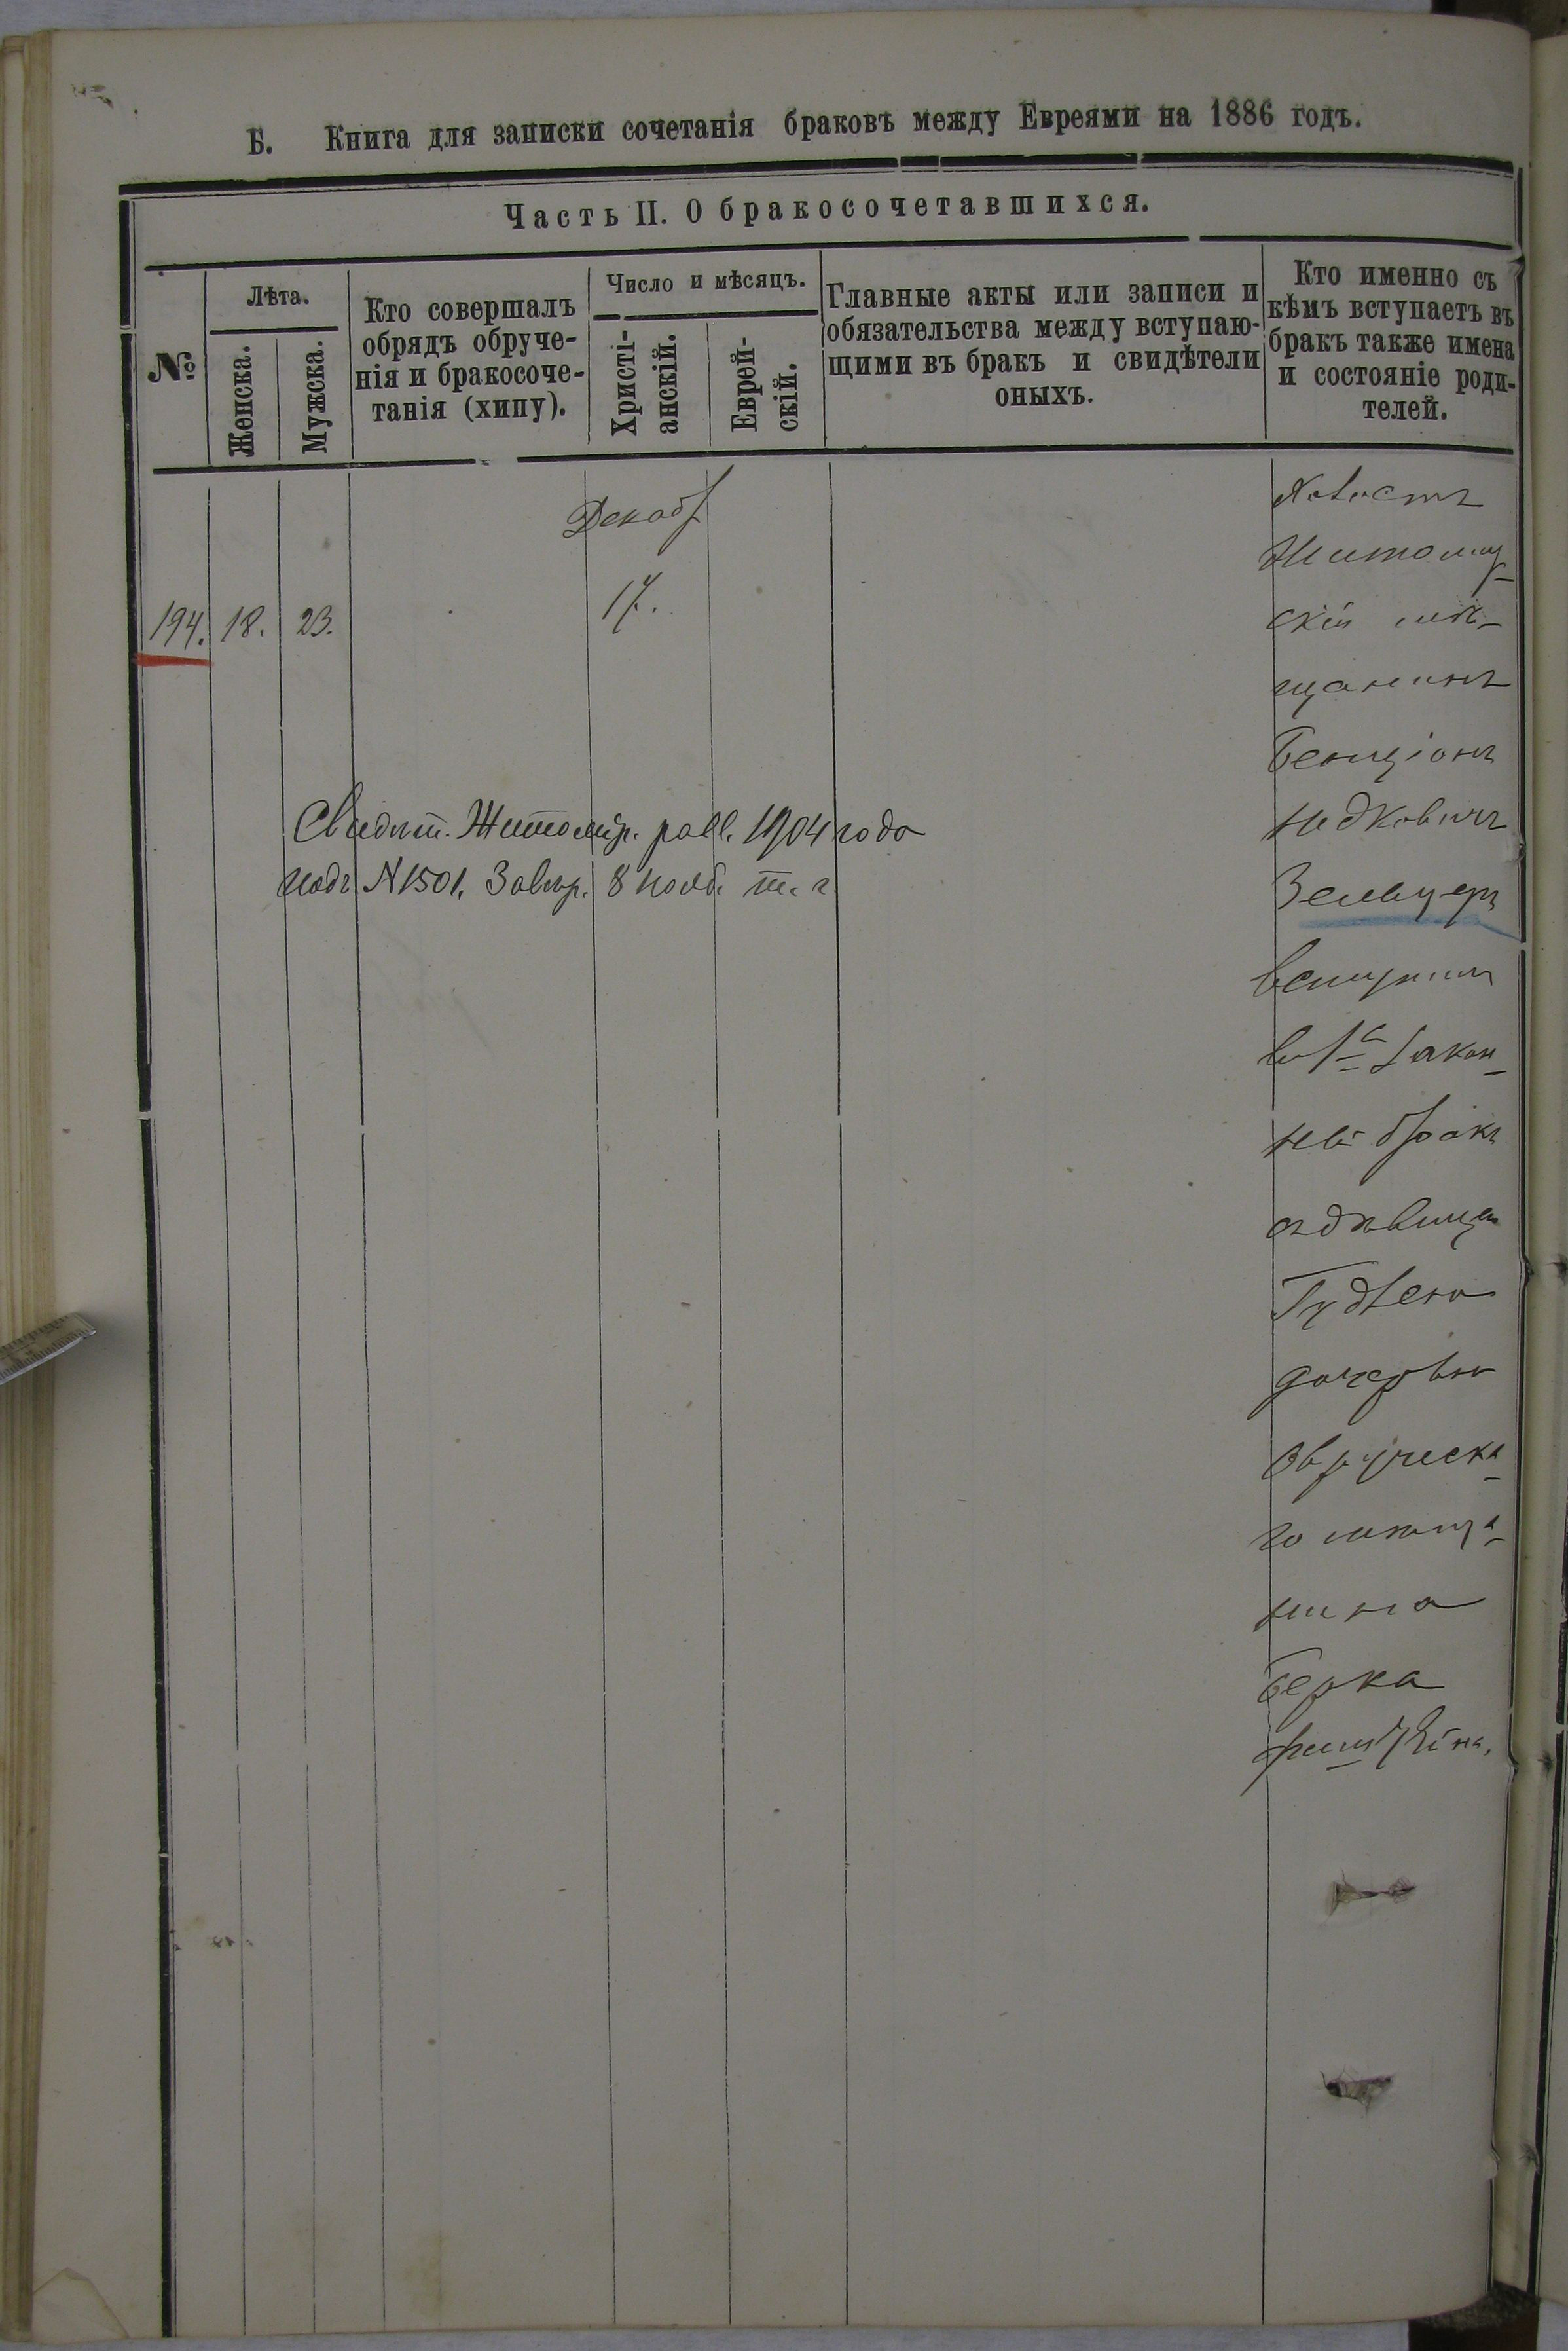 Б. Книга для записки сочетанія браковъ между Евреями на 1886 годъ.
Часть II. О бракосочетавшихся.
№
Лѣта.
Женска.
Мужска.
Кто совершалъ
обрядъ обруче-
нія и бракосоче-
танія (хипу).
Число и мѣсяцъ.
Христі-
анскій.
Еврей-
скій.
Главные акты или записи и
обязательства между вступаю-
щими въ бракъ и свидѣтели
оныхъ.
Кто именно съ
кѣмъ вступаетъ въ
бракъ также имена
и состояніе роди-
телей.
194. 18. 23.
Декаб
17.
Свидѣт. Житомір. равв. 1904 года
подъ N 1501. Завѣр. 8 нояб. т. г.
Холостъ
Житомир
скій мѣ-
щанинъ
Бенціонъ
Зельцеръ
вступил
въ 1й закон
ный бракъ
съ дѣвицею
дочерью
Овручска
го мѣща-
нина
Берка